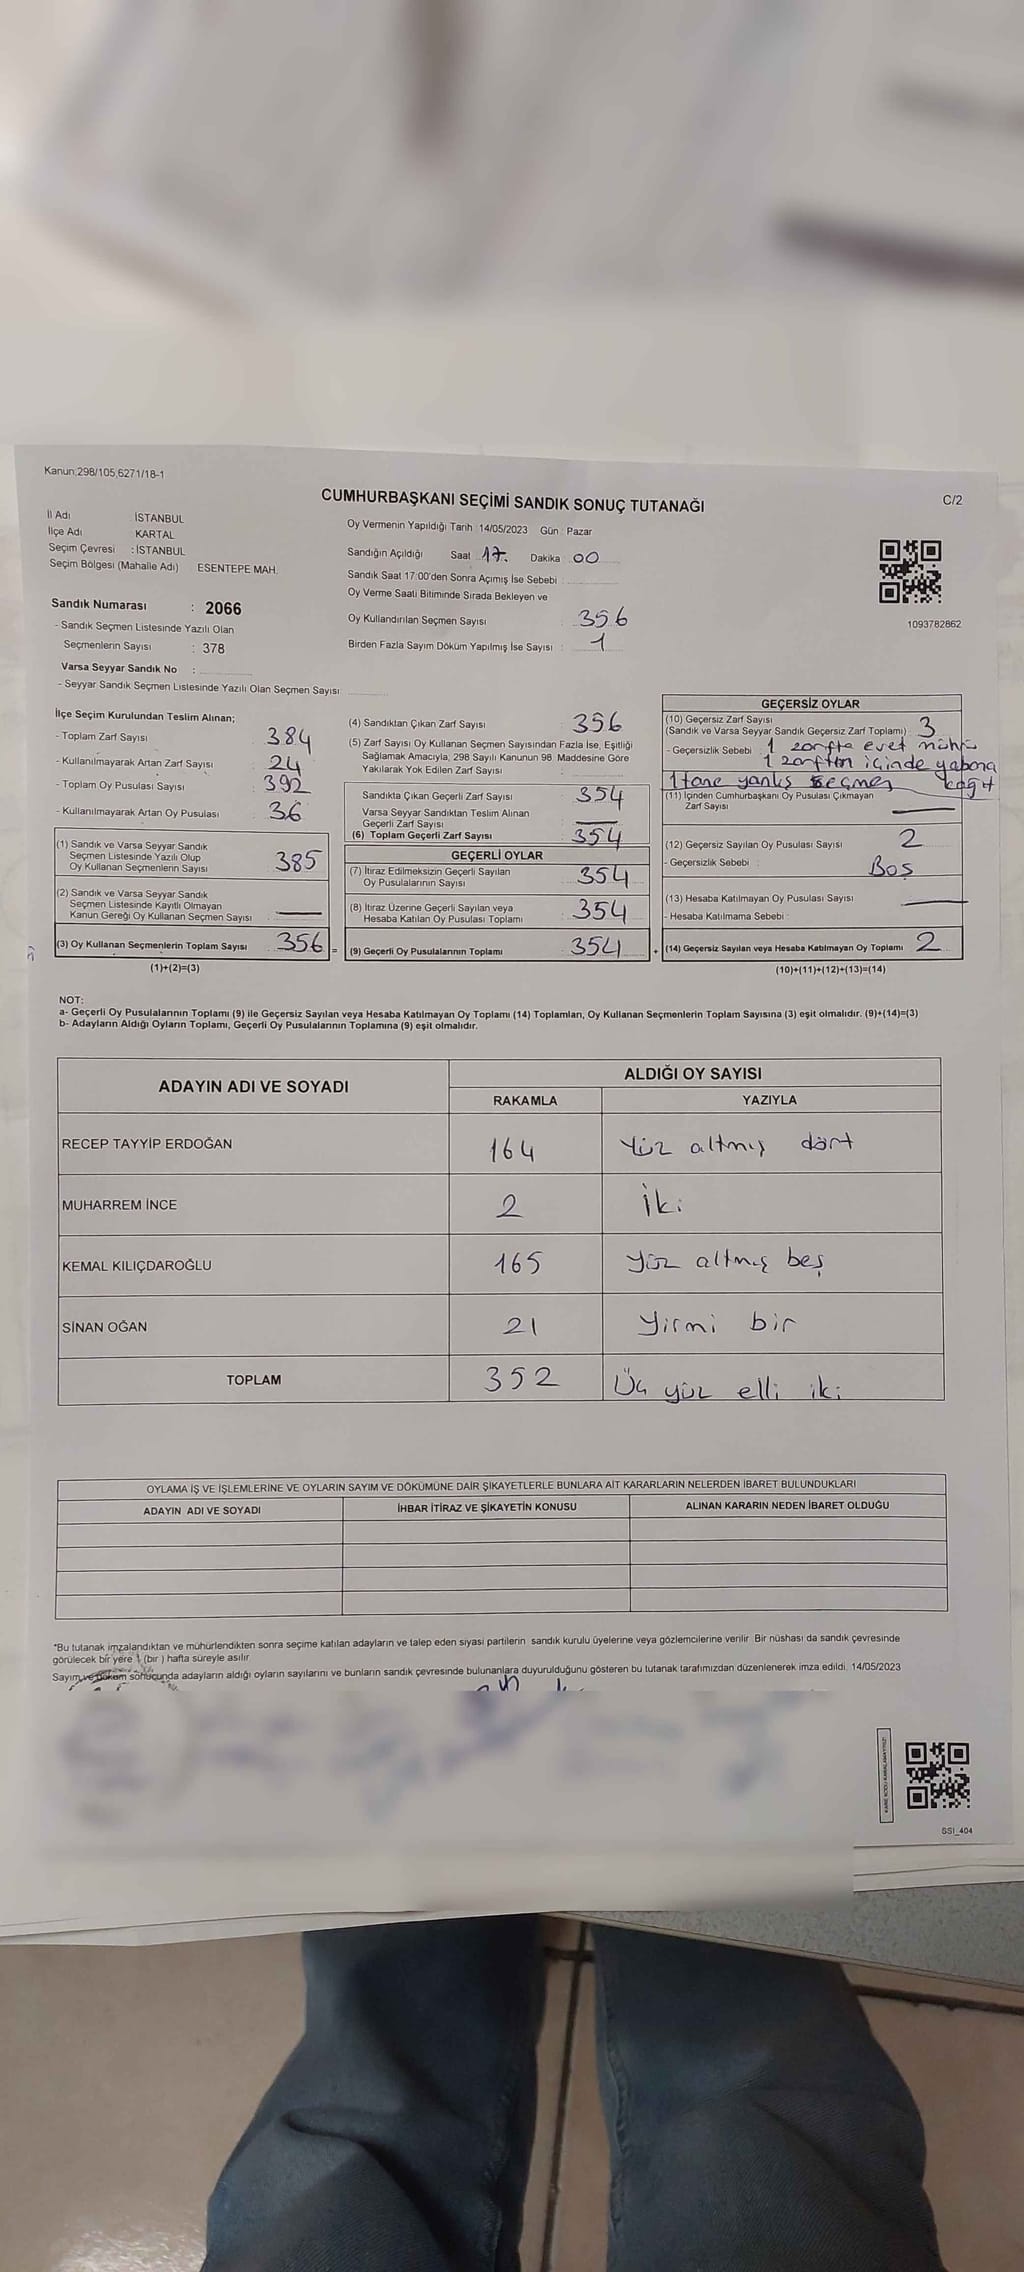 Kanun;298/105,6271/18-1
C/2
CUMHURBAŞKANI SEÇİMİ SANDIK SONUÇ TUTANAĞI
İl Adı İSTANBUL
İlçe Adı KARTAL
Seçim Çevresi : İSTANBUL
Seçim Bölgesi (Mahalle Adı) ESENTEPE MAH.
Sandık Numarası : 2066
- Sandık Seçmen Listesinde Yazılı Olan
Seçmenlerin Sayısı : 378
Varsa Seyyar Sandık No :
- Seyyar Sandık Seçmen Listesinde Yazılı Olan Seçmen Sayısı
Oy Vermenin Yapıldığı Tarih 14/05/2023 Gün Pazar
Sandığın Açıldığı Saat 17. Dakika 00
Sandık Saat 17:00'den Sonra Açımış İse Sebebi
Oy Verme Saati Bitiminde Sırada Bekleyen ve
Oy Kullandırılan Seçmen Sayısı 356
Birden Fazla Sayım Döküm Yapılmış İse Sayısı : 1
1093782862
İlçe Seçim Kurulundan Teslim Alınan;
- Toplam Zarf Sayısı 384
- Kullanılmayarak Artan Zarf Sayısı 24
- Toplam Oy Pusulası Sayısı 392
- Kullanılmayarak Artan Oy Pusulası 36
(1) Sandık ve Varsa Seyyar Sandık
Seçmen Listesinde Yazılı Olup
Oy Kullanan Seçmenlerin Sayısı 385
(2) Sandık ve Varsa Seyyar Sandık
Seçmen Listesinde Kayıtlı Olmayan
Kanun Gereği Oy Kullanan Seçmen Sayısı
(3) Oy Kullanan Seçmenlerin Toplam Sayısı 356 =
(1)+(2)=(3)
(4) Sandıktan Çıkan Zarf Sayısı 356
(5) Zarf Sayısı Oy Kullanan Seçmen Sayısından Fazla İse, Eşitliği
Sağlamak Amacıyla, 298 Sayılı Kanunun 98. Maddesine Göre
Yakılarak Yok Edilen Zarf Sayısı
Sandıkta Çıkan Geçerli Zarf Sayısı 354
Varsa Seyyar Sandıktan Teslim Alınan
Geçerli Zarf Sayısı
(6) Toplam Geçerli Zarf Sayısı 354
GEÇERLİ OYLAR
(7) İtiraz Edilmeksizin Geçerli Sayılan
Oy Pusulalarının Sayısı 354
(8) İtiraz Üzerine Geçerli Sayılan veya
Hesaba Katılan Oy Pusulası Toplamı 354
(9) Geçerli Oy Pusulalarının Toplamı 354 +
GEÇERSİZ OYLAR
(10) Geçersiz Zarf Sayısı
(Sandık ve Varsa Seyyar Sandık Geçersiz Zarf Toplamı) 3
- Geçersizlik Sebebi : 1 zarfta evet mührü
1 zarftan içinde yabancı
1 tane yanlış seçmen kağıt
(11) İçinden Cumhurbaşkanı Oy Pusulası Çıkmayan
Zarf Sayısı
(12) Geçersiz Sayılan Oy Pusulası Sayısı 2
- Geçersizlik Sebebi : Boş
(13) Hesaba Katılmayan Oy Pusulası Sayısı
- Hesaba Katılmama Sebebi
(14) Geçersiz Sayılan veya Hesaba Katılmayan Oy Toplamı 2
(10)+(11)+(12)+(13)=(14)
NOT:
a- Geçerli Oy Pusulalarının Toplamı (9) ile Geçersiz Sayılan veya Hesaba Katılmayan Oy Toplamı (14) Toplamları, Oy Kullanan Seçmenlerin Toplam Sayısına (3) eşit olmalıdır. (9)+(14)=(3)
b- Adayların Aldığı Oyların Toplamı, Geçerli Oy Pusulalarının Toplamına (9) eşit olmalıdır.
ADAYIN ADI VE SOYADI
ALDIĞI OY SAYISI
RAKAMLA YAZIYLA
RECEP TAYYİP ERDOĞAN 164 Yüz altmış dört
MUHARREM İNCE 2 İki
KEMAL KILIÇDAROĞLU 165 Yüz altmış beş
SİNAN OĞAN 21 Yirmi bir
TOPLAM 352 Üç yüz elli iki
OYLAMA İŞ VE İŞLEMLERİNE VE OYLARIN SAYIM VE DÖKÜMÜNE DAİR ŞİKAYETLERLE BUNLARA AİT KARARLARIN NELERDEN İBARET BULUNDUKLARI
ADAYIN ADI VE SOYADI İHBAR İTİRAZ VE ŞİKAYETİN KONUSU ALINAN KARARIN NEDEN İBARET OLDUĞU
*Bu tutanak imzalandıktan ve mühürlendikten sonra seçime katılan adayların ve talep eden siyasi partilerin sandık kurulu üyelerine veya gözlemcilerine verilir. Bir nüshası da sandık çevresinde
görülecek bir yere 1 (bir ) hafta süreyle asılır.
Sayım ve döküm sonucunda adayların aldığı oyların sayılarını ve bunların sandık çevresinde bulunanlara duyurulduğunu gösteren bu tutanak tarafımızdan düzenlenerek imza edildi. 14/05/2023
SSI_404